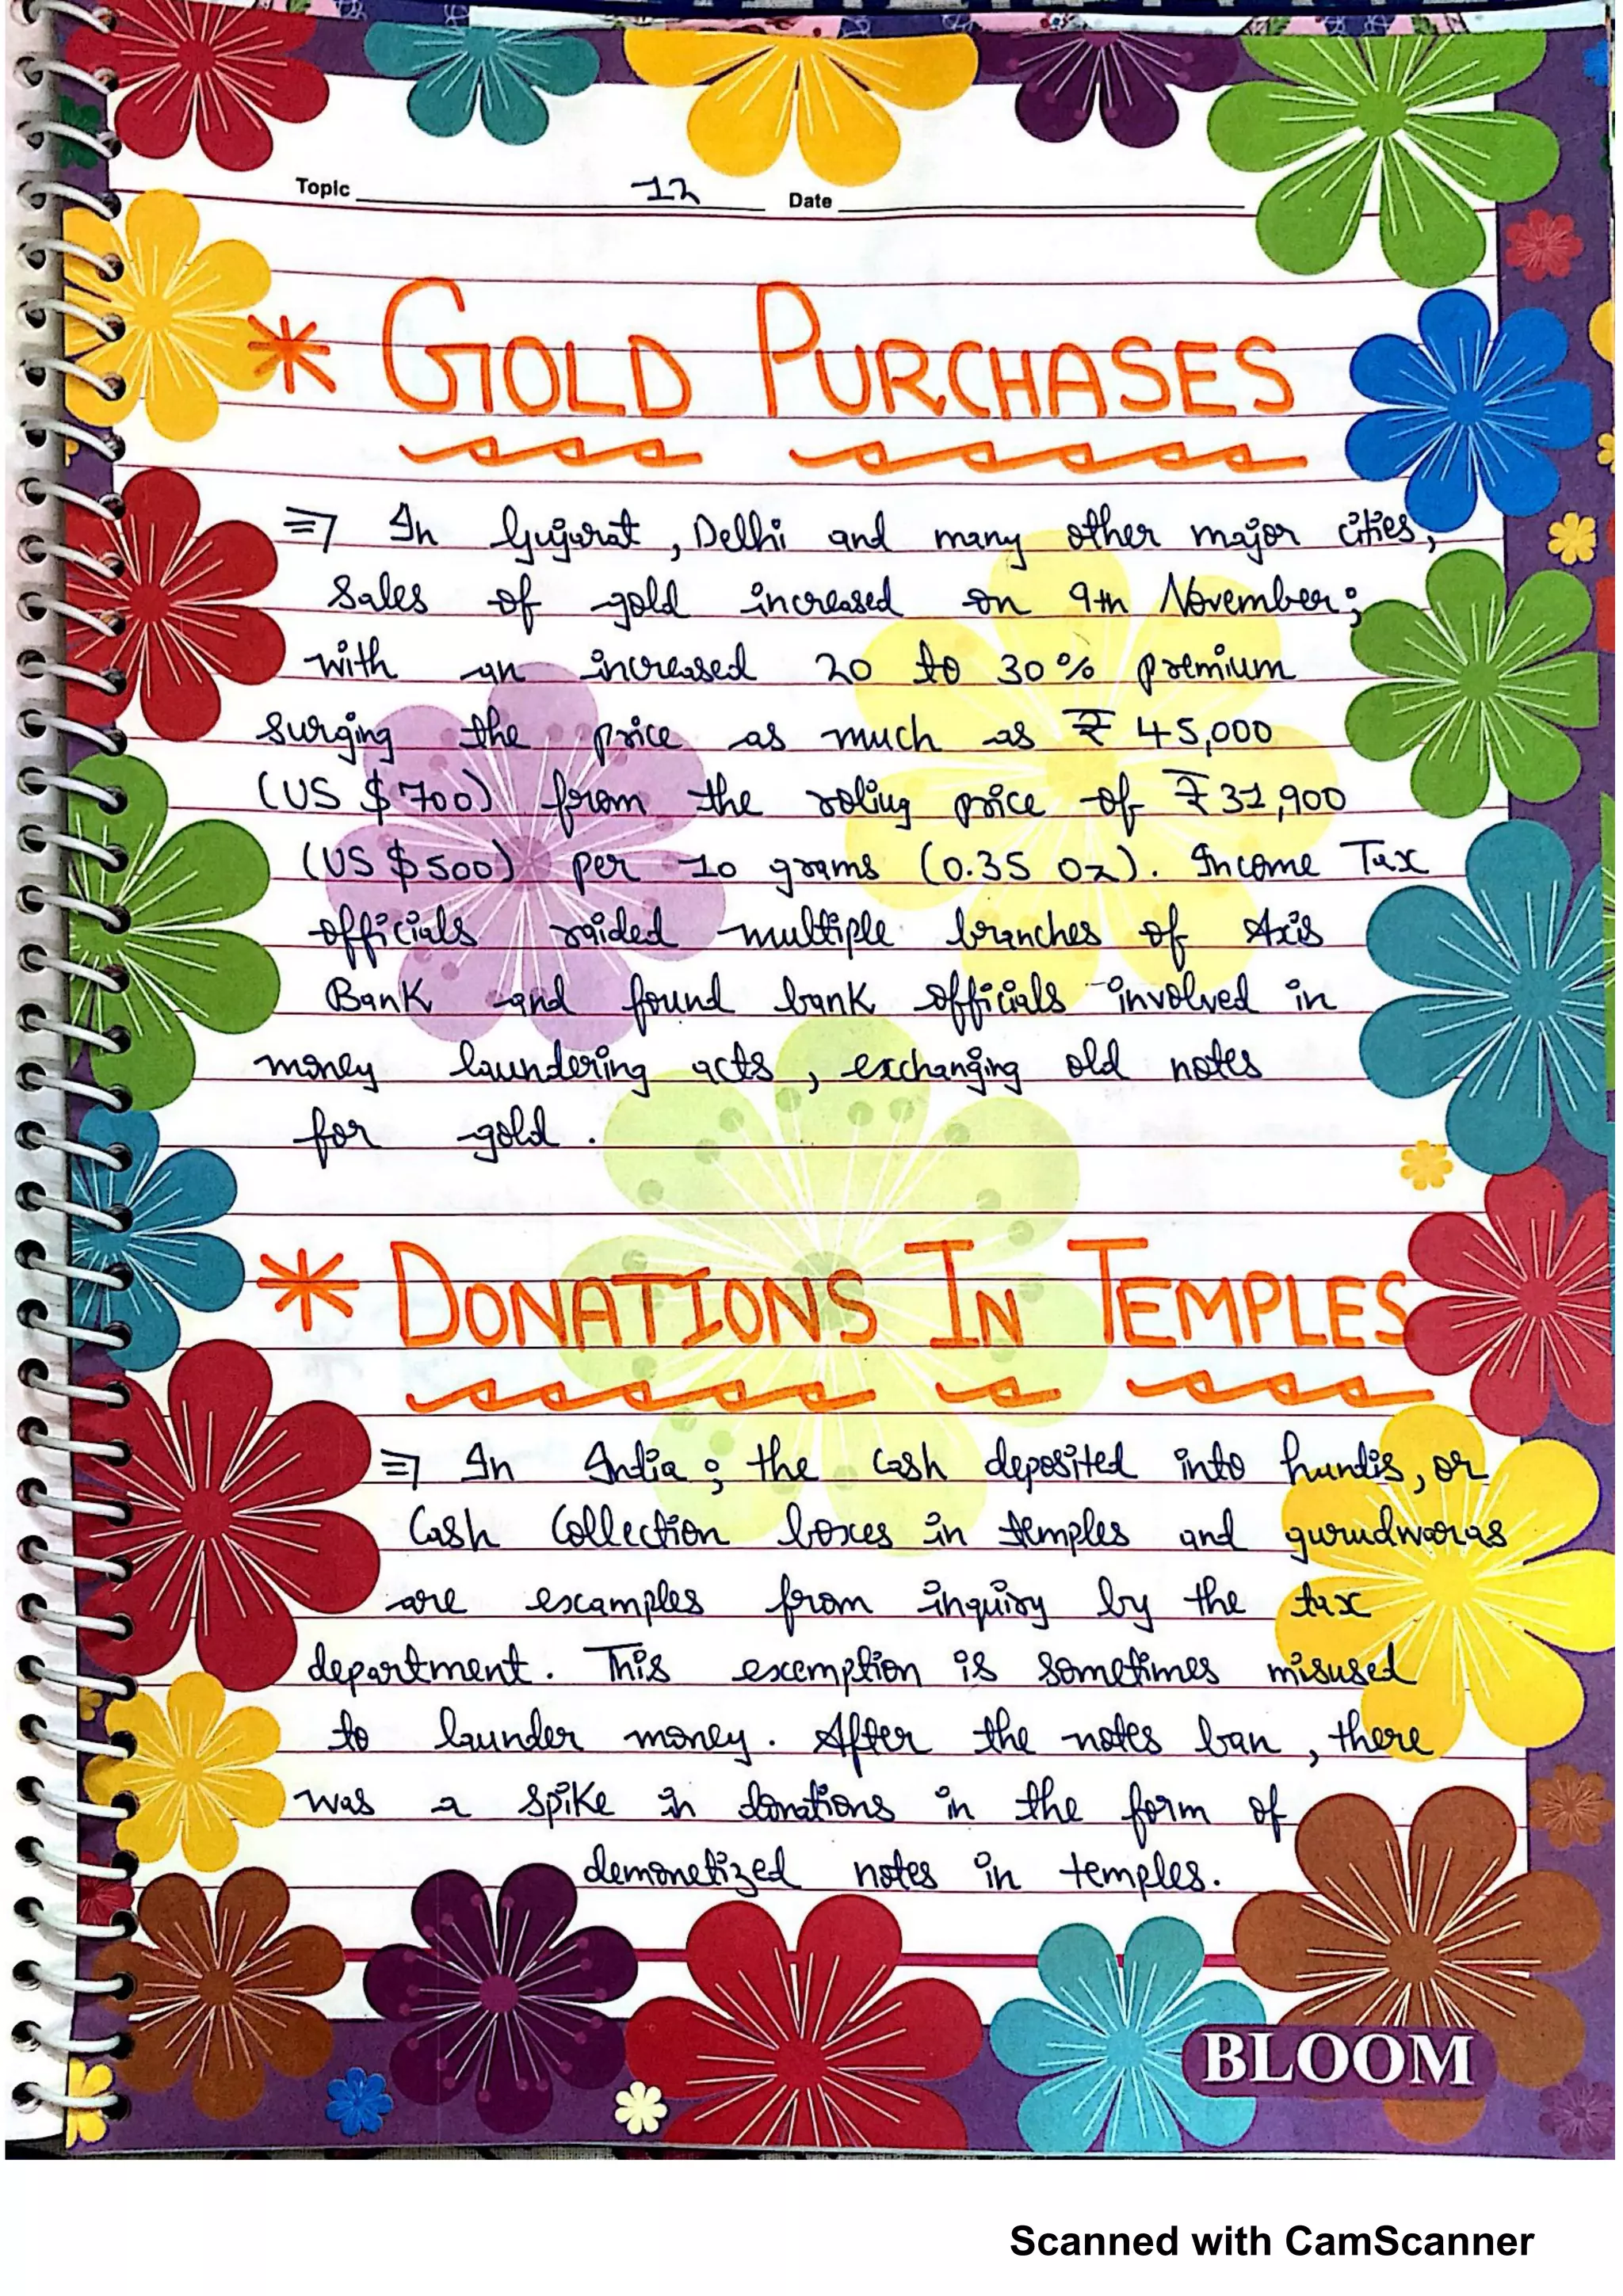 Topic 12 Date
* GOLD PURCHASES
⇒ In Gujarat, Delhi and many other major cities,
Sales of gold increased on 9th November;
with an increased 20 to 30% premium
surging the price as much as ₹ 45,000
(US $700) from the roling price of ₹31,900
(US $500) per 10 grams (0.35 oz). Income Tax
officials raided multiple branches of Axis
Bank and found bank officials involved in
money laundering acts, exchanging old notes
for gold.
* DONATIONS IN TEMPLES
⇒ In India; the cash deposited into hundis, or
Cash Collection boxes in temples and gurudwaras
are examples from inquiry by the tax
department. This exemption is sometimes misused
to launder money. After the notes ban, there
was a spike in donations in the form of
demonetized notes in temples.
BLOOM
Scanned with CamScanner